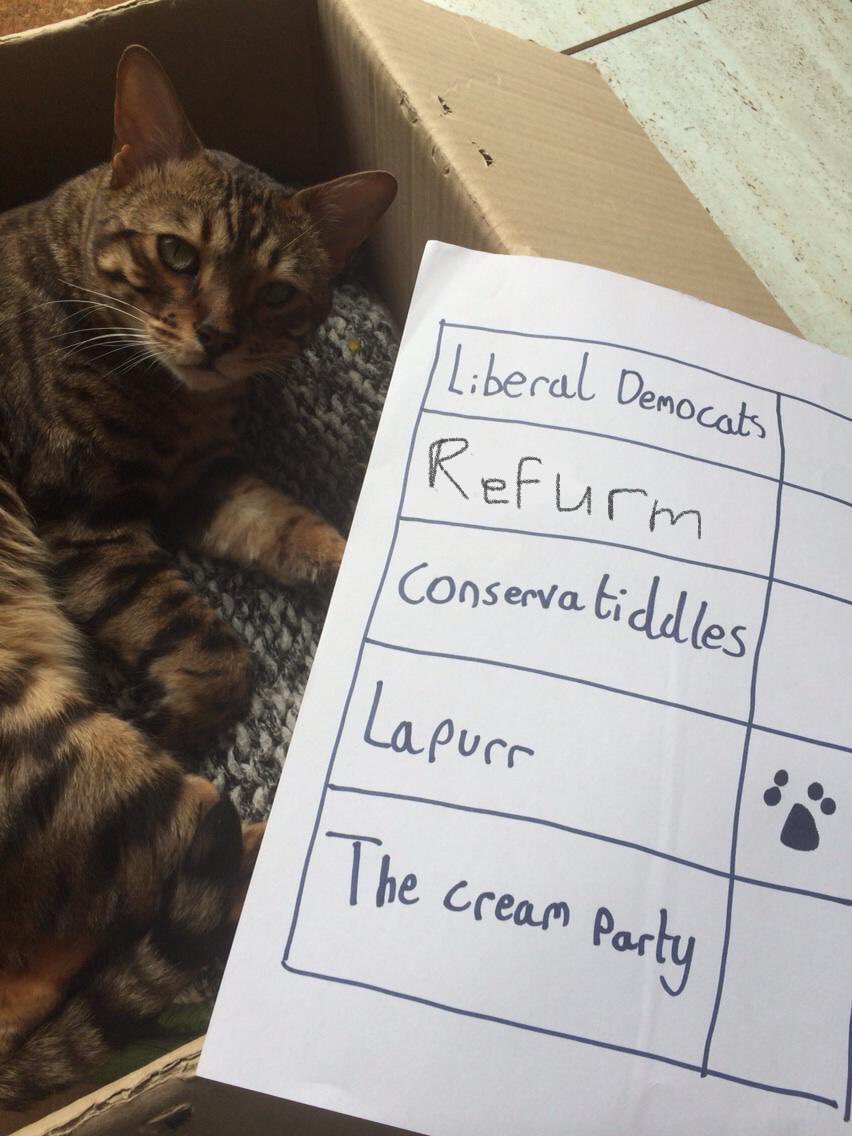 Liberal Democats
Refurm
Conservatiddles
Lapurr
The cream Party